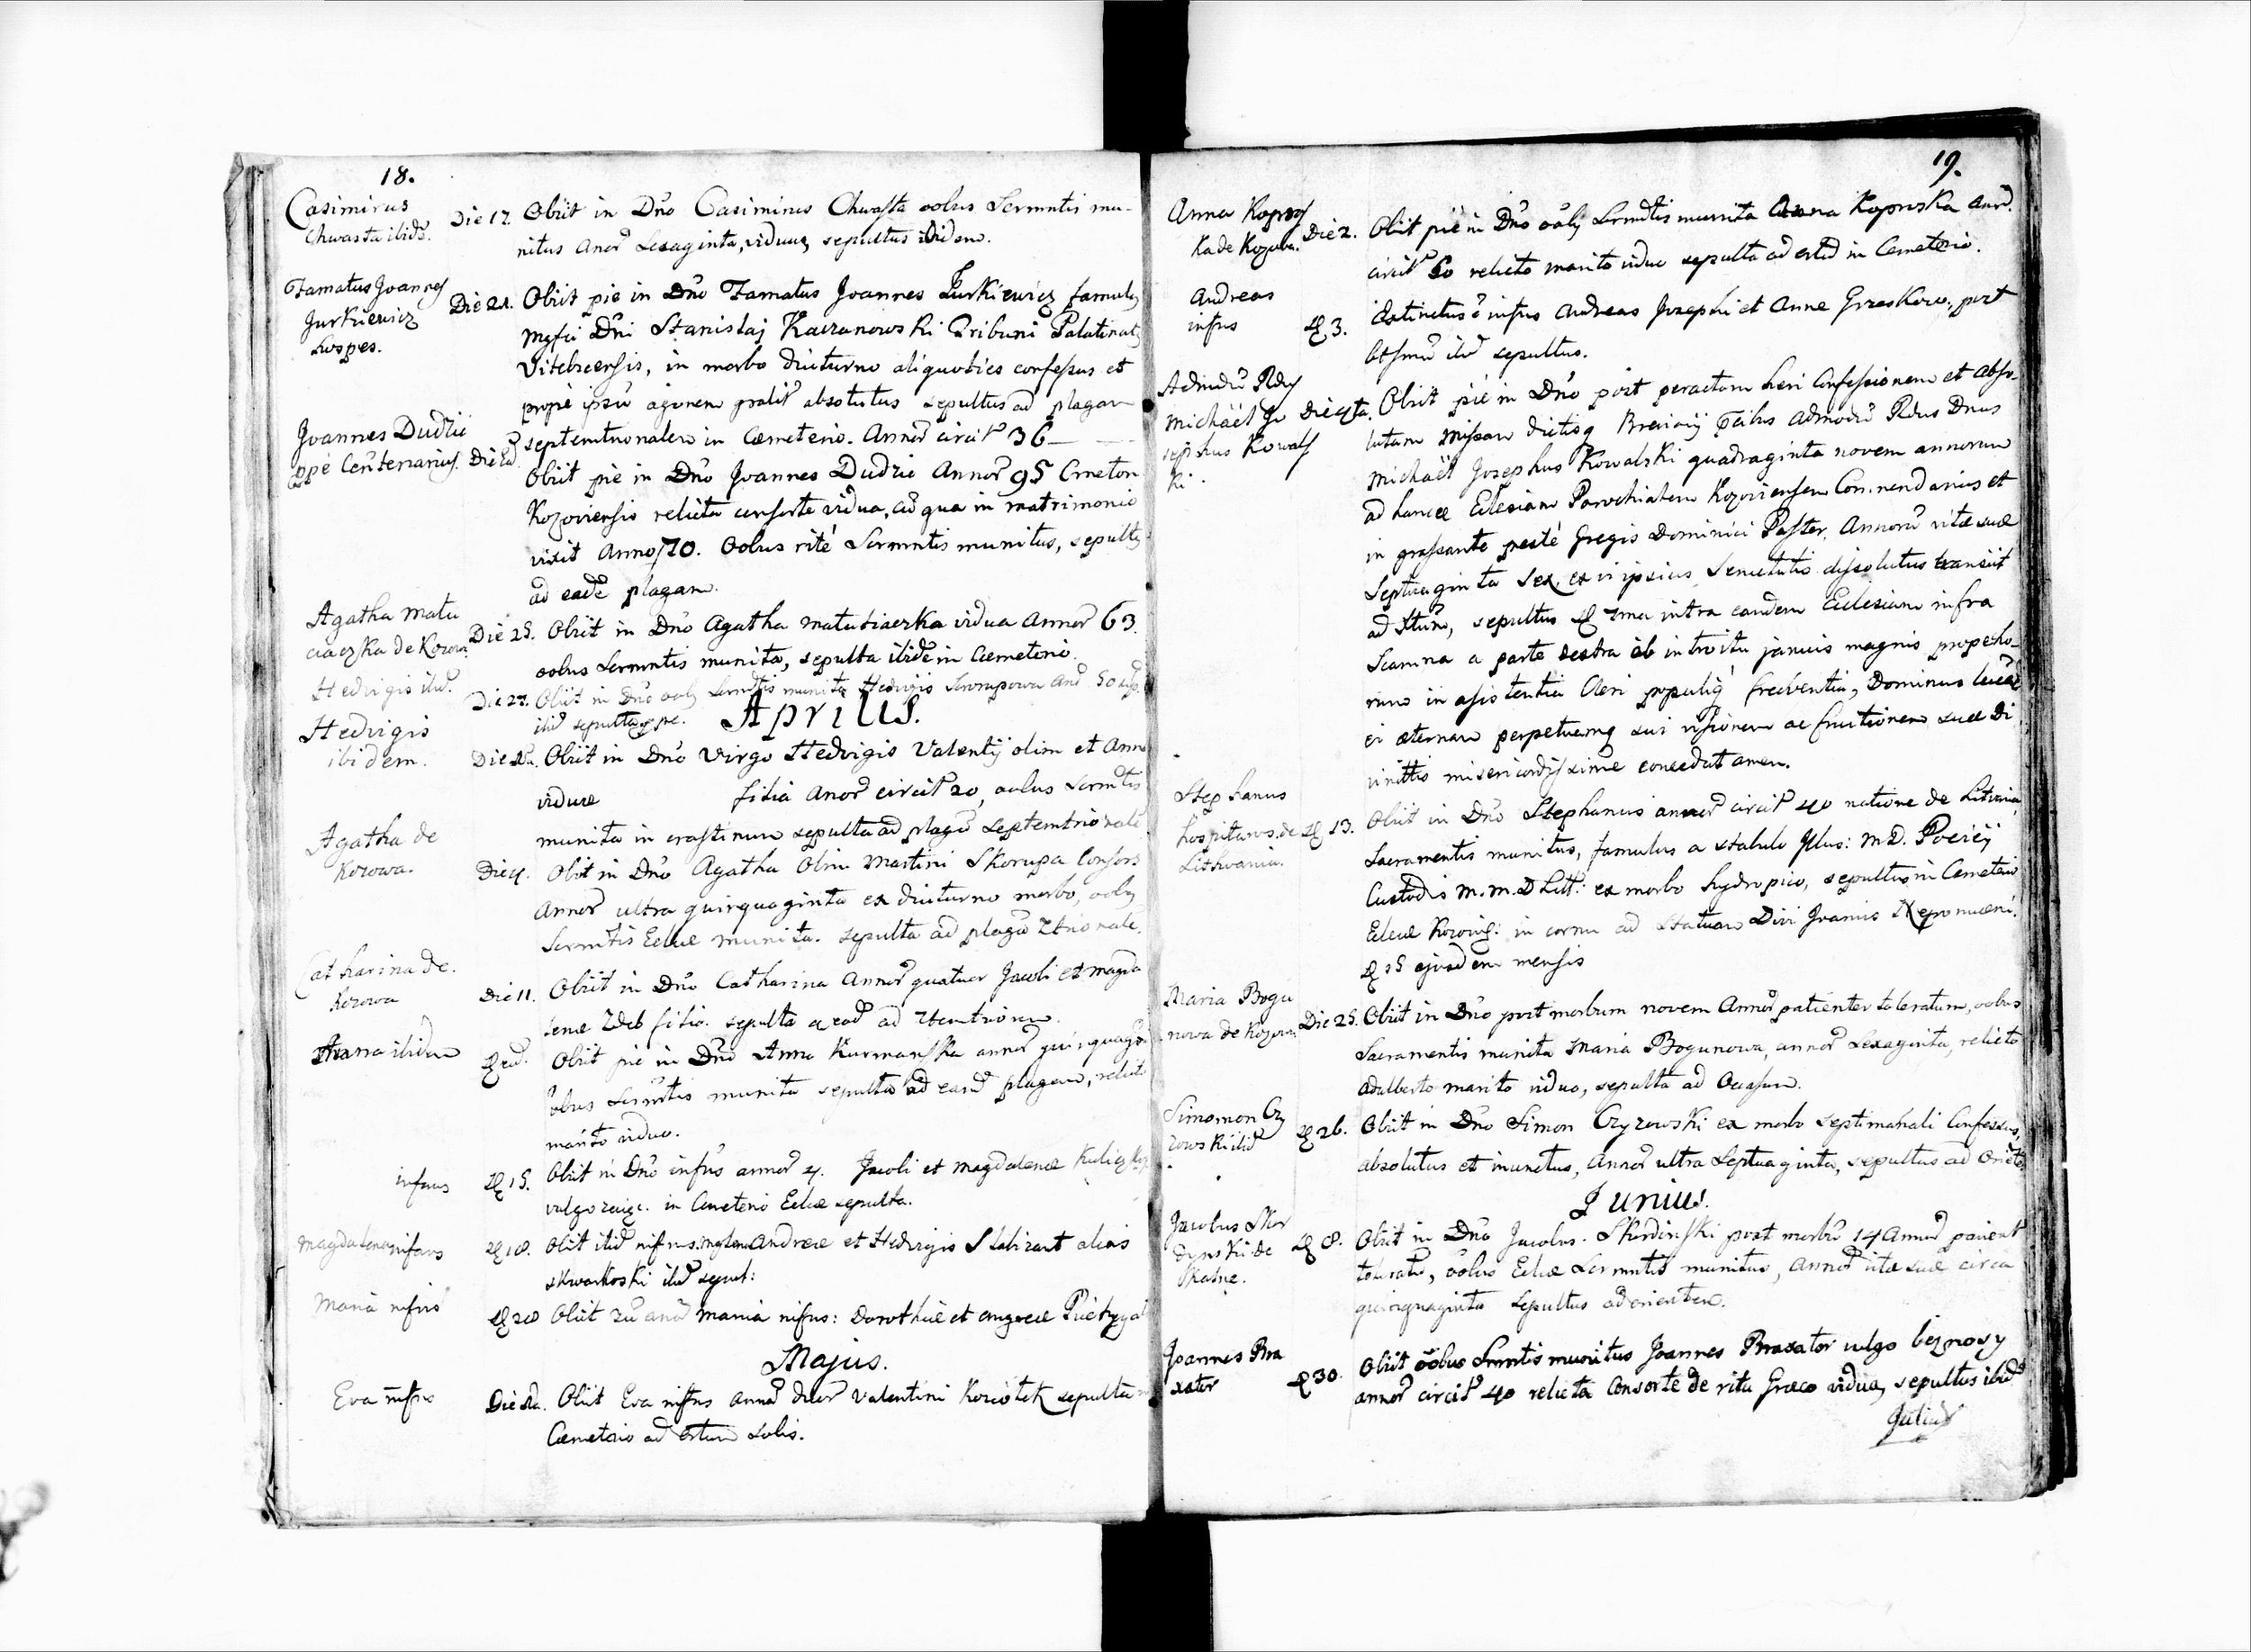 18.
Casimirus
Chwasta ibidẽ.
Die 17. Obiit in Dño Casimirus Chwasta oobus Scrmntis mu-
nitus Anoř Sexaginta, viduus, sepultus ibidem.
Famatus Joannes
Jurkiewicz
hospes.
Die 21. Obiit pie in Dño Famatus Joannes Jurkiewicz famulus
Mgfci Dñi Stanislai Kaczanowski Tribuni Palatinatus
Vitebscensis, in morbo diuturno aliquoties confessus et
prope ipsũ agonem gralit absolutus sepultus ad plagam
septemtrionalem in Cœmeterio. Annoř circit 36
Joannes Dudzic
ppe Centenarius.
Die Ead. Obiit pie in Dño Joannes Dudzic Annoř 95 Cmeton
Kozoviensis relicta consorte vidua, cũ qua in matrimonio
vixit Annos 70. Oobus rité Scrmntis munitus, sepultus
ad eadẽ plagam.
Agatha Matu
ciaczka de Kozowa
Die 25. Obiit in Dño Agatha Matusiaczka vidua Annoř 63.
oobus Scrmntis munita, sepulta ibidẽ in Cœmeterio.
Hedvigis ibid.
Die 27. Obiit in Dño ooby Scrmtis munita Hedvigis Skorupowa Anõ 50
ibid sepulta
Aprilis.
Hedvigis
ibidem.
Die 2da. Obiit in Dño Virgo Hedvigis Valentij olim et Annæ
viduæ filia Anoř circit 20, oobus Scrmtis
munita in crastinum sepulta ad plagã Septemtrionalẽ
Agatha de
Kozowa.
Die 4. Obiit in Dño Agatha Olim Martini Skorupa Consors
Annoř ultra quinquaginta ex diuturno morbo, ooby
Scrmtis Eclæ munita. Sepulta ad plagã 7trionalẽ.
Catharina de
Kozowa
Die 11. Obiit in Dño Catharina Annoř quatuor Jacobi et Magda
lenæ Zdeb filia. sepulta ad 7temtrionem.
Anna ibidem
Obiit pie in Dño Anna Kurmanska annoř quinquaginta
oobus Scrmtis munita sepulta ad eand plagam, relicto
marito viduo.
infans
15. Obiit in Dño infns annoř 4. Jacobi et Magdalenæ
vulgo in Cmeterio Eclæ sepulta.
Magdalena infans
18. Obiit ibid infns Andreæ et Hedvigis alias
ibid sepul:
Maria infns
28 Obiit Maria infns: Dorotheæ et
Majus.
Eva infns
Die 2da. Obiit Eva infns Annoř duor Valentini Koziołek sepulta in
Cœmeterio ad ortum Solis.
19.
Anna Koprus
ka de Kozowa.
Die 2. Obiit pie in Dño ooby Scrmtis munita Anna Kopruska Anoř.
circit 60 relicto marito viduo sepulta ad ortũ in Cemeterio.
Andreas
infns
3. Extinctus ẽ infns Andreas Josephi et Annæ Grzeskow, post
btsmũ ibid sepultus.
Admdũ Rdus
Michaël Jo
sephus Kowals
ki.
Die 4ta. Obiit pie in Dño post peractam heri Confessionem et abso-
lutam Missam dictisq Breviarij pcibus Admodũ Rdus Dnus
Michaël Josephus Kowalski quadraginta novem annorum
ad hancce Eclesiam Parochialem Kozoviensem Commendarius et
in grassante peste Gregis Dominici Pastor, Annorũ vitæ suæ
Septuaginta Sex, ex vi ipsius Senectutis dissolutus transiit
ad Xtum, sepultus 7ma intra eandem Ecclesiam infra
Scamna a parte dextra ab introitu januis magnis prope cho-
rum in assistentia Cleri populiq frequentia, Dominus lucẽ
ei æternam perpetuamq sui visionem ac fruitionem suæ Di
vinittis misericordissime concedat amen.
Stephanus
hospitans de
Lithvania.
13. Obiit in Dño Stephanus annoř circit 40 natione de Litvania,
Sacramentis munitus, famulus a stabulo Illus: M.D. Pociej
Custodis M.M.D Litt: ex morbo hydropico, sepultus in Cemeterio
Eclæ Kozovieñ: in cornu ad Statuam Divi Joannis Nepomuceni.
15 ejusdem mensis
Maria Bogu
nowa de Kozowa
Die 25. Obiit in Dño post morbum novem Annoř patienter toleratum, oobus
Sacramentis munita Maria Bogunowa, annoř Sexaginta, relicto
Adalberto marito viduo, sepulta ad Occasum.
Simomon Czy
zowski ibid
26. Obiit in Dño Simon Czyzowski ex morbo septimanali Confessus,
absolutus et inunctus, Annoř ultra Septuaginta, sepultus ad Orientẽ
Junius.
Jacobus Skor
dynski de
8. Obiit in Dño Jacobus Skurdinski post morbũ 14 Annoř patient
toleratũ, oobus Eclæ Scrmntis munitus, Annoř vitæ suæ circa
quinquaginta Sepultus ad orientem.
Joannes Bra
xator
30. Obiit oobus Scrmtis munitus Joannes Braxator vulgo beznosy
annoř circit 40 relicta Consorte de ritu Græco vidua, sepultus ibid
Julius